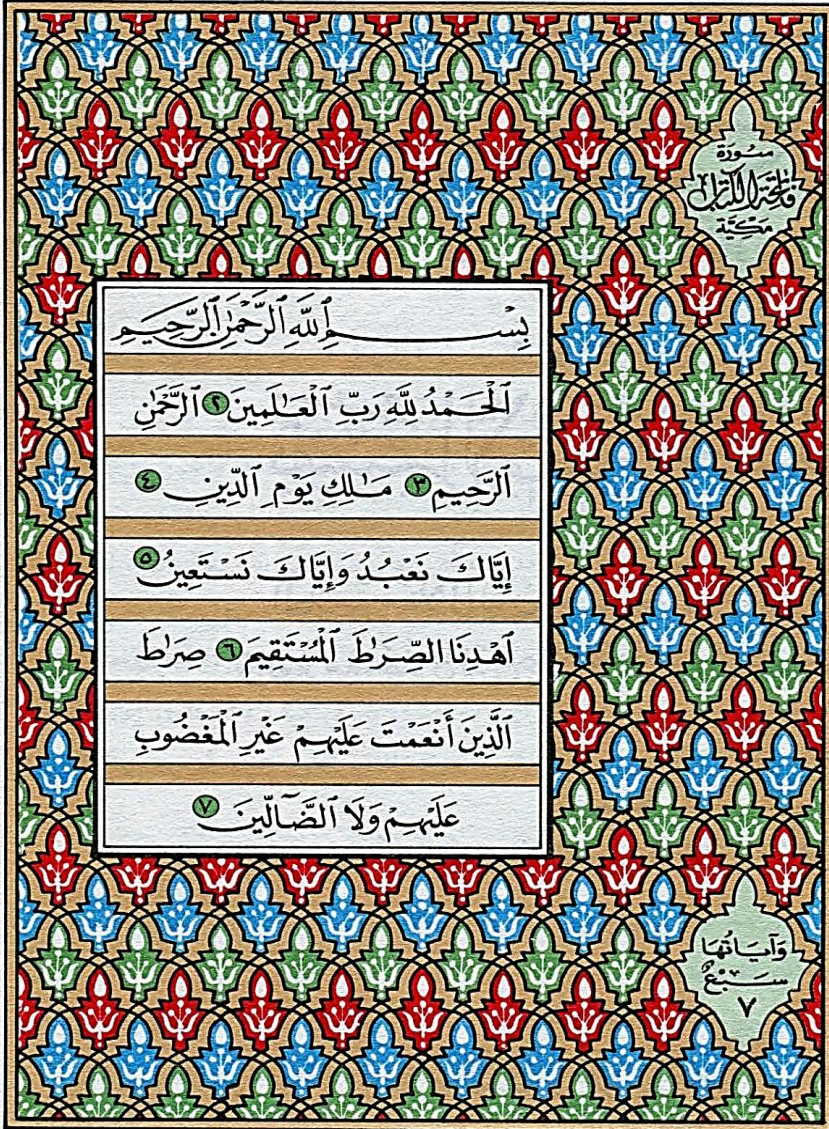 سُورَةُ
فَاتِحَةِ الْكِتَابِ
مَكِّيَّة
بِسْمِ ٱللَّهِ ٱلرَّحْمَٰنِ ٱلرَّحِيمِ
ٱلْحَمْدُ لِلَّهِ رَبِّ ٱلْعَٰلَمِينَ ٢ ٱلرَّحْمَٰنِ
ٱلرَّحِيمِ ٣ مَٰلِكِ يَوْمِ ٱلدِّينِ ٤
إِيَّاكَ نَعْبُدُ وَإِيَّاكَ نَسْتَعِينُ ٥
ٱهْدِنَا ٱلصِّرَٰطَ ٱلْمُسْتَقِيمَ ٦ صِرَٰطَ
ٱلَّذِينَ أَنْعَمْتَ عَلَيْهِمْ غَيْرِ ٱلْمَغْضُوبِ
عَلَيْهِمْ وَلَا ٱلضَّآلِّينَ ٧
وَآيَاتُهَا
سَبْعٌ
٧